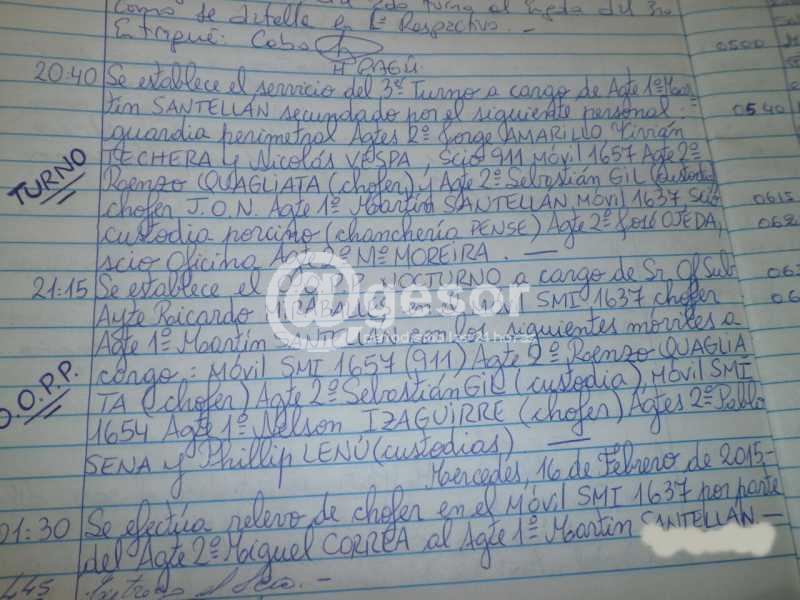 Como se detalla en l° Respectivo. -
Entregué: Cabo
H RAGÚ.
0500
20:40 Se establece el servicio del 3er Turno a cargo de Agte 1ª Mar-
tin SANTELLAN secundado por el siguiente personal: 0540
guardia perimetral Agtes 2ª Jorge AMARILLO Yirrán
TURNO TECHERA y Nicolás VESPA, Scio 911 Móvil 1657 Agte 2ª
Roenzo QUAGLIATA (chofer) y Agte 2ª Sebastián GIL (custodia)
chofer J.O.N. Agte 1º Martin SANTELLAN Móvil 1637 Scio 0615
custodia porcino (chanchería PENSE) Agte 2º José OJEDA,
scio Oficina Agte 2ª Mª MOREIRA. —
21:15 Se establece el NOCTURNO a cargo de Sr. Of Sub
Ayte Ricardo MIRABALLES SMI 1637 chofer
@gesor
Agte 1º Martin SANTELLAN con los siguientes móviles a
D.O.P.P. cargo: Móvil SMI 1657 (911) Agte 2º Roenzo QUAGLIA
TA (chofer) Agte 2º Sebastián GIL (custodia), Móvil SMI
1654 Agte 1º Nelson IZAGUIRRE (chofer) Agtes 2º Pablo
SENA y Phillip LENÚ (custodias). —
Mercedes, 16 de Febrero de 2015-
21:30 Se efectúa relevo de chofer en el Móvil SMI 1637 por parte
del Agte 2º Miguel CORREA al Agte 1º Martin SANTELLAN —